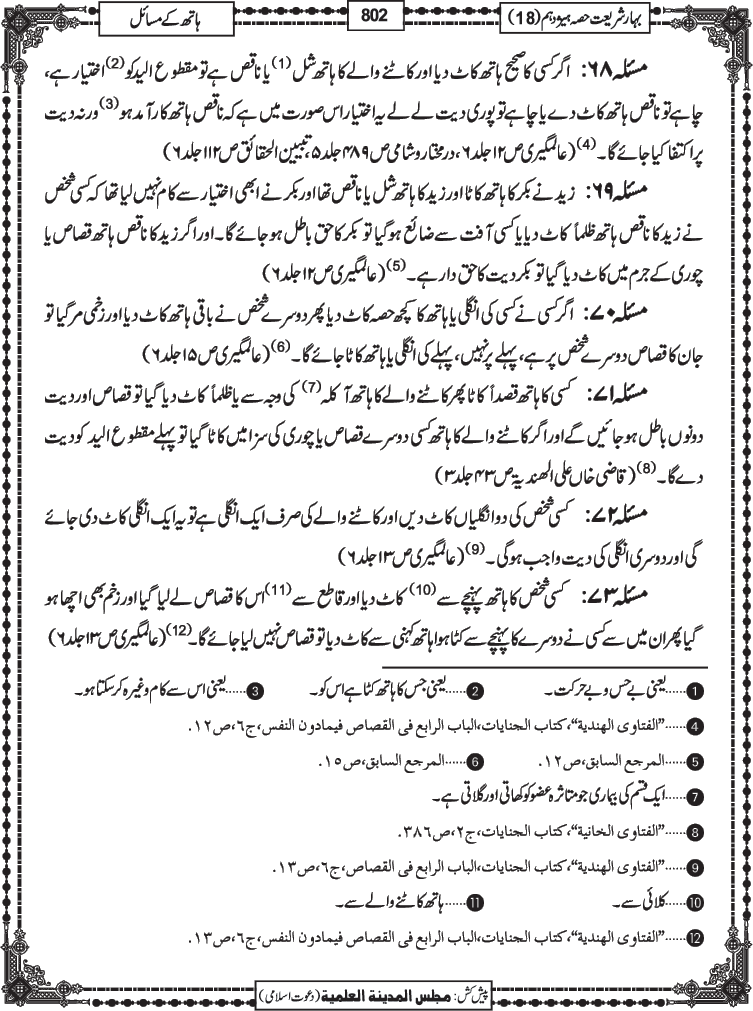 بہار شریعت حصہ ہیژدہم (18)
802
ہاتھ کے مسائل
مسئلہ ۶۸: اگر کسی کا صحیح ہاتھ کاٹ دیا اور کاٹنے والے کا ہاتھ شل(1) یا ناقص ہے تو مقطوع الید کو(2) اختیار ہے،
چاہے تو ناقص ہاتھ کاٹ دے یا چاہے تو پوری دیت لے لے یہ اختیار اس صورت میں ہے کہ ناقص ہاتھ کار آمد ہو(3) ورنہ دیت
پر اکتفا کیا جائے گا۔(4) (عالمگیری ص ۱۲ جلد ۶، درمختار و شامی ص ۴۸۹ جلد ۵، تبیین الحقائق ص ۱۱۲ جلد ۶)
مسئلہ ۶۹: زید نے بکر کا ہاتھ کاٹا اور زید کا ہاتھ شل یا ناقص تھا اور بکر نے ابھی اختیار سے کام نہیں لیا تھا کہ کسی شخص
نے زید کا ناقص ہاتھ ظلماً کاٹ دیا یا کسی آفت سے ضائع ہوگیا تو بکر کا حق باطل ہو جائے گا۔ اور اگر زید کا ناقص ہاتھ قصاص یا
چوری کے جرم میں کاٹ دیا گیا تو بکر دیت کا حق دار ہے۔(5) (عالمگیری ص ۱۲ جلد ۶)
مسئلہ ۷۰: اگر کسی نے کسی کی انگلی یا ہاتھ کا کچھ حصہ کاٹ دیا پھر دوسرے شخص نے باقی ہاتھ کاٹ دیا اور زخمی مر گیا تو
جان کا قصاص دوسرے شخص پر ہے، پہلے پر نہیں، پہلے کی انگلی یا ہاتھ کاٹا جائے گا۔(6) (عالمگیری ص ۱۵ جلد ۶)
مسئلہ ۷۱: کسی کا ہاتھ قصداً کاٹا پھر کاٹنے والے کا ہاتھ آکلہ(7) کی وجہ سے یا ظلماً کاٹ دیا گیا تو قصاص اور دیت
دونوں باطل ہو جائیں گے اور اگر کاٹنے والے کا ہاتھ کسی دوسرے قصاص یا چوری کی سزا میں کاٹا گیا تو پہلے مقطوع الید کو دیت
دے گا۔(8) (قاضی خاں علی الھندیۃ ص ۴۳ جلد ۳)
مسئلہ ۷۲: کسی شخص کی دو انگلیاں کاٹ دیں اور کاٹنے والے کی صرف ایک انگلی ہے تو یہ ایک انگلی کاٹ دی جائے
گی اور دوسری انگلی کی دیت واجب ہوگی۔(9) (عالمگیری ص ۱۳ جلد ۶)
مسئلہ ۷۳: کسی شخص کا ہاتھ پہنچے سے(10) کاٹ دیا اور قاطع سے(11) اس کا قصاص لے لیا گیا اور زخم بھی اچھا ہو
گیا پھر ان میں سے کسی نے دوسرے کا پہنچے سے کٹا ہوا ہاتھ کہنی سے کاٹ دیا تو قصاص نہیں لیا جائے گا۔(12) (عالمگیری ص ۱۳ جلد ۶)
1 ......یعنی بے حس و بے حرکت۔ 2 ......یعنی جس کا ہاتھ کٹا ہے اس کو۔ 3 ......یعنی اس سے کام وغیرہ کر سکتا ہو۔
4 ......”الفتاوی الھندیۃ“، کتاب الجنایات، الباب الرابع فی القصاص فیمادون النفس، ج۶، ص۱۲.
5 ......المرجع السابق، ص۱۲. 6 ......المرجع السابق، ص۱۵.
7 ......ایک قسم کی بیماری جو متاثرہ عضو کو کھاتی اور گلاتی ہے۔
8 ......”الفتاوی الخانیۃ“، کتاب الجنایات، ج۲، ص۳۸۶.
9 ......”الفتاوی الھندیۃ“، کتاب الجنایات، الباب الرابع فی القصاص، ج۶، ص۱۳.
10 ......کلائی سے۔ 11 ......ہاتھ کاٹنے والے سے۔
12 ......”الفتاوی الھندیۃ“، کتاب الجنایات، الباب الرابع فی القصاص فیمادون النفس، ج۶، ص۱۳.
پیش کش: مجلس المدینۃ العلمیۃ (دعوت اسلامی)